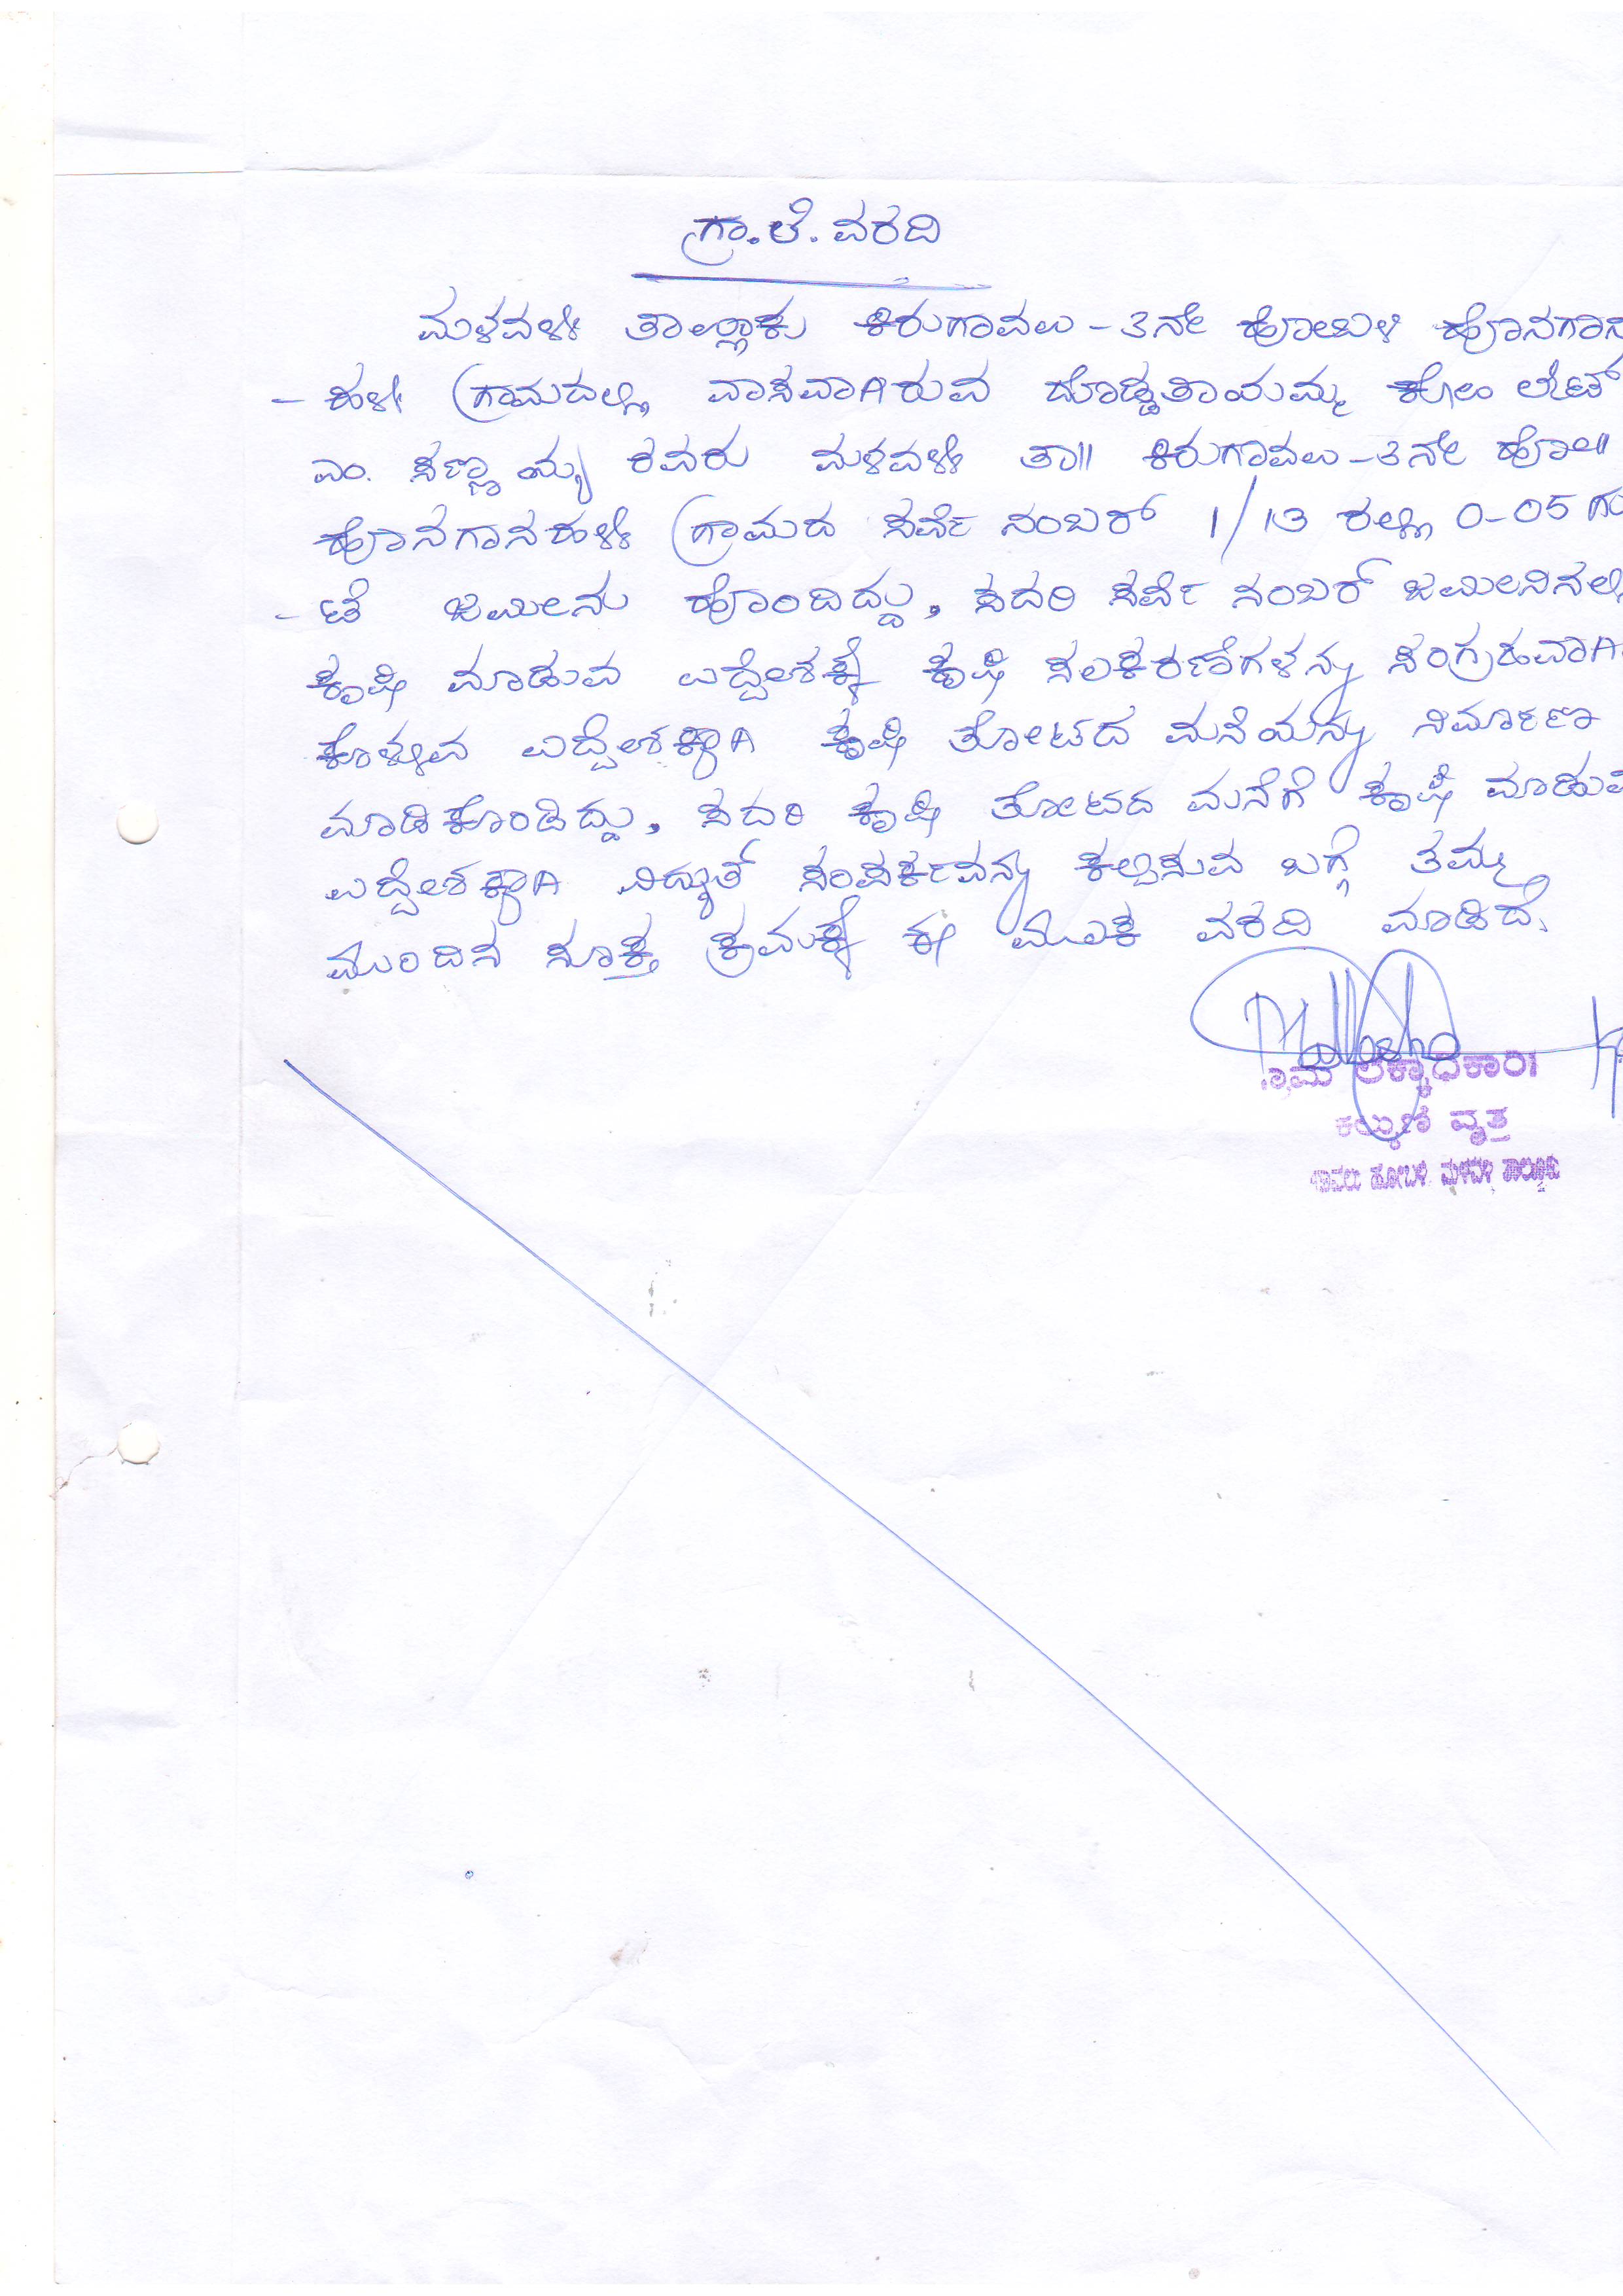 ಗ್ರಾ.ಲೆ. ವರದಿ
ಮಳವಳ್ಳಿ ತಾಲ್ಲೂಕು ಕಿರುಗಾವಲು - 3ನೇ ಹೋಬಳಿ ಹೊನಗಾನ
- ಹಳ್ಳಿ ಗ್ರಾಮದಲ್ಲಿ ವಾಸವಾಗಿರುವ ದೊಡ್ಡತಾಯಮ್ಮ ಕೋಂ ಲೇಟ್
ಎಂ. ಸಣ್ಣಯ್ಯ ರವರು ಮಳವಳ್ಳಿ ತಾ|| ಕಿರುಗಾವಲು - 3ನೇ ಹೋ||
ಹೊನಗಾನಹಳ್ಳಿ ಗ್ರಾಮದ ಸರ್ವೆ ನಂಬರ್ 1/13 ರಲ್ಲಿ 0-05 ಗುಂ
- ಟೆ ಜಮೀನು ಹೊಂದಿದ್ದು, ಸದರಿ ಸರ್ವೆ ನಂಬರ್ ಜಮೀನಿನಲ್ಲಿ
ಕೃಷಿ ಮಾಡುವ ಉದ್ದೇಶಕ್ಕೆ ಕೃಷಿ ಸಲಕರಣೆಗಳನ್ನು ಸಂಗ್ರಹವಾಗಿ
ಕೊಳ್ಳುವ ಉದ್ದೇಶಕ್ಕಾಗಿ ಕೃಷಿ ತೋಟದ ಮನೆಯನ್ನು ನಿರ್ಮಾಣ
ಮಾಡಿಕೊಂಡಿದ್ದು, ಸದರಿ ಕೃಷಿ ತೋಟದ ಮನೆಗೆ ಕೃಷಿ ಮಾಡುವ
ಉದ್ದೇಶಕ್ಕಾಗಿ ವಿದ್ಯುತ್ ಸಂಪರ್ಕವನ್ನು ಕಲ್ಪಿಸುವ ಬಗ್ಗೆ ತಮ್ಮ
ಮುಂದಿನ ಸೂಕ್ತ ಕ್ರಮಕ್ಕೆ ಈ ಮೂಲಕ ವರದಿ ಮಾಡಿದೆ.
ಗ್ರಾಮ ಲೆಕ್ಕಾಧಿಕಾರಿ
ವೃತ್ತ
ಗಾವಲು ಹೋಬಳಿ. ಮಳವಳ್ಳಿ ತಾಲ್ಲೂಕು